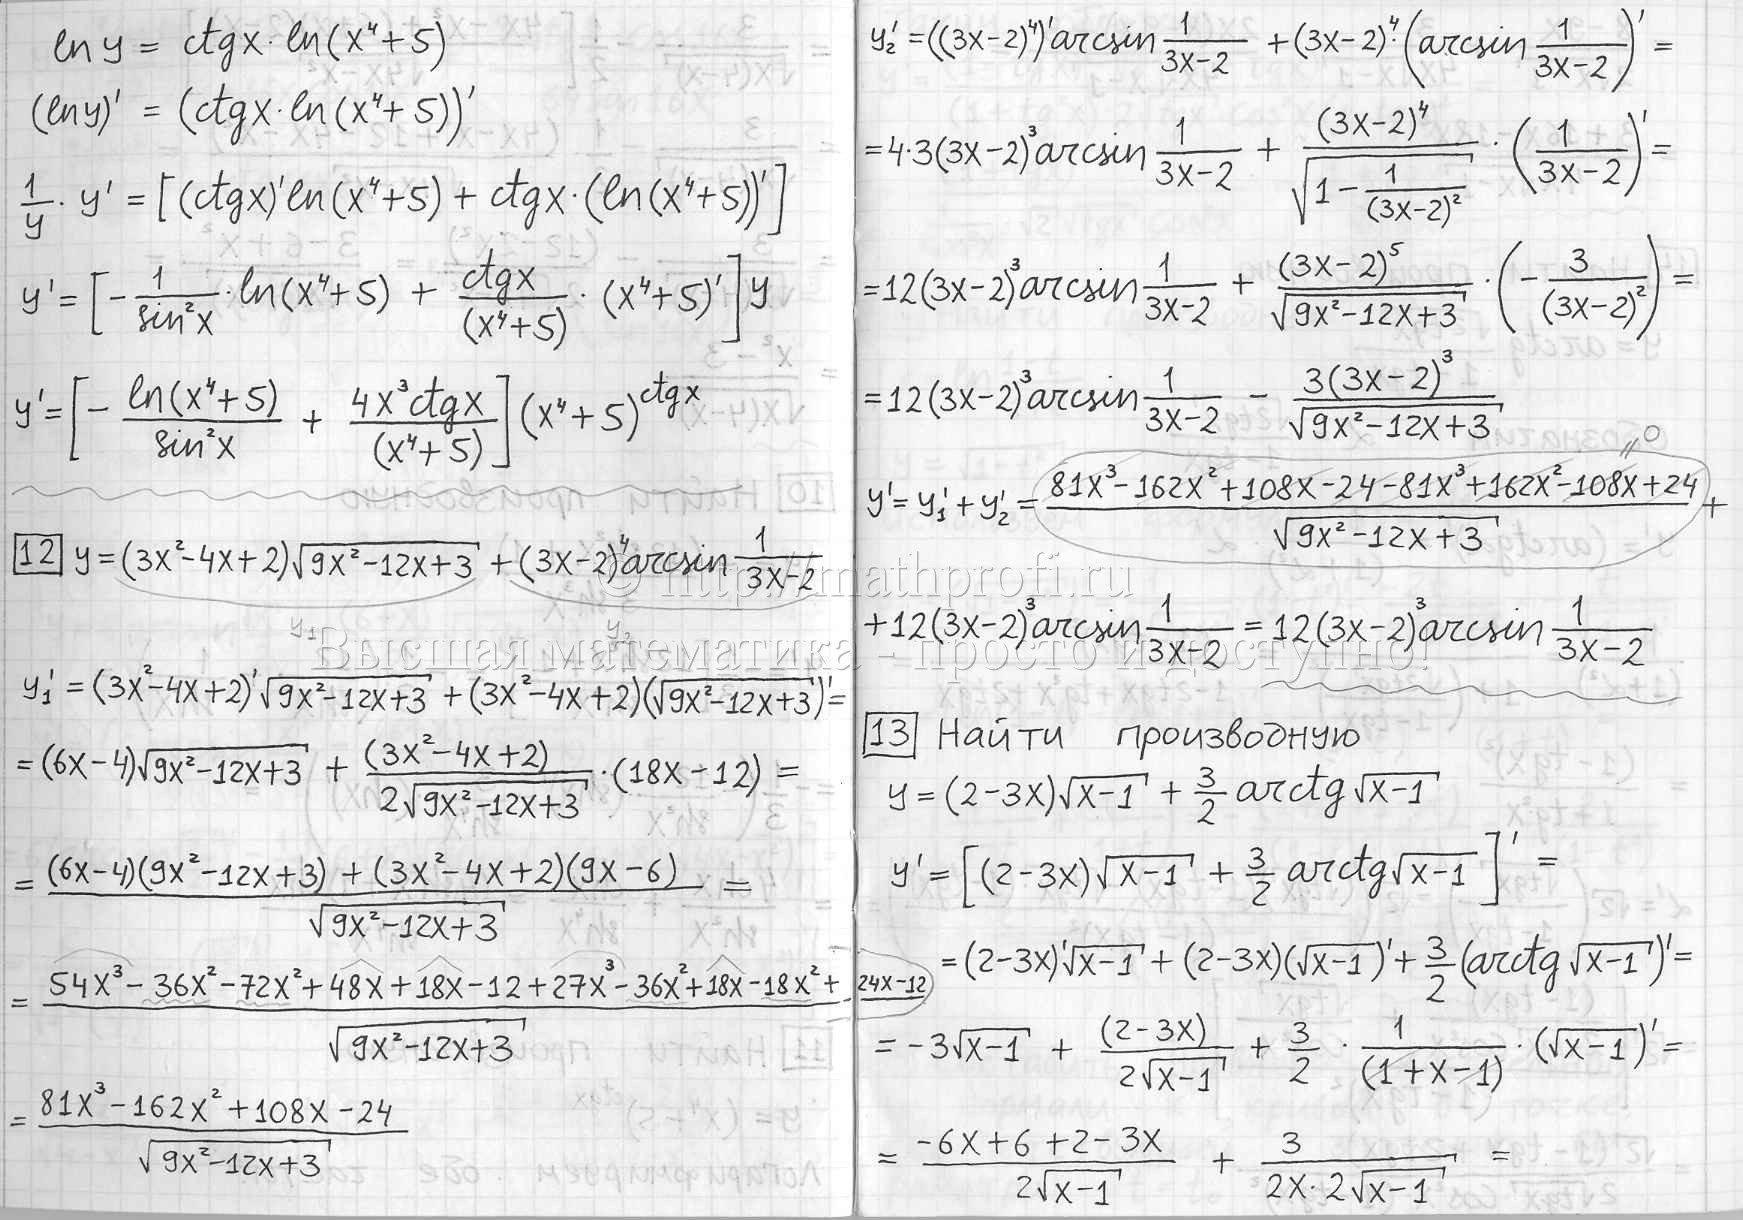 ln y = ctgx · ln(x⁴+5)
(ln y)' = (ctgx · ln(x⁴+5))'
1/y · y' = [(ctgx)' ln(x⁴+5) + ctgx · (ln(x⁴+5))']
y' = [-1/sin²x · ln(x⁴+5) + ctgx/(x⁴+5) · (x⁴+5)'] y
y' = [- ln(x⁴+5)/sin²x + 4x³ctgx/(x⁴+5)] (x⁴+5)^ctgx
12 y = (3x²-4x+2)√(9x²-12x+3) + (3x-2)⁴ arcsin 1/(3x-2)
y₁ y₂
y₁' = (3x²-4x+2)'√(9x²-12x+3) + (3x²-4x+2)(√(9x²-12x+3))' =
= (6x-4)√(9x²-12x+3) + (3x²-4x+2)/(2√(9x²-12x+3)) · (18x-12) =
= ((6x-4)(9x²-12x+3) + (3x²-4x+2)(9x-6))/√(9x²-12x+3) =
= (54x³-36x²-72x²+48x+18x-12+27x³-36x²+18x-18x²+24x-12)/√(9x²-12x+3)
= (81x³-162x²+108x-24)/√(9x²-12x+3)
y₂' = ((3x-2)⁴)' arcsin 1/(3x-2) + (3x-2)⁴ · (arcsin 1/(3x-2))' =
= 4·3(3x-2)³ arcsin 1/(3x-2) + (3x-2)⁴/√(1 - 1/(3x-2)²) · (1/(3x-2))' =
= 12(3x-2)³ arcsin 1/(3x-2) + (3x-2)⁵/√(9x²-12x+3) · (- 3/(3x-2)²) =
= 12(3x-2)³ arcsin 1/(3x-2) - 3(3x-2)³/√(9x²-12x+3)
=0
y' = y₁' + y₂' = (81x³-162x²+108x-24-81x³+162x²-108x+24)/√(9x²-12x+3) +
+ 12(3x-2)³ arcsin 1/(3x-2) = 12(3x-2)³ arcsin 1/(3x-2)
13 Найти производную
y = (2-3x)√(x-1) + 3/2 arctg√(x-1)
y' = [(2-3x)√(x-1) + 3/2 arctg√(x-1)]' =
= (2-3x)'√(x-1) + (2-3x)(√(x-1))' + 3/2 (arctg√(x-1))' =
= -3√(x-1) + (2-3x)/(2√(x-1)) + 3/2 · 1/(1+x-1) · (√(x-1))' =
= (-6x+6+2-3x)/(2√(x-1)) + 3/(2x·2√(x-1)) =
© http://mathprofi.ru
Высшая математика - просто и доступно!